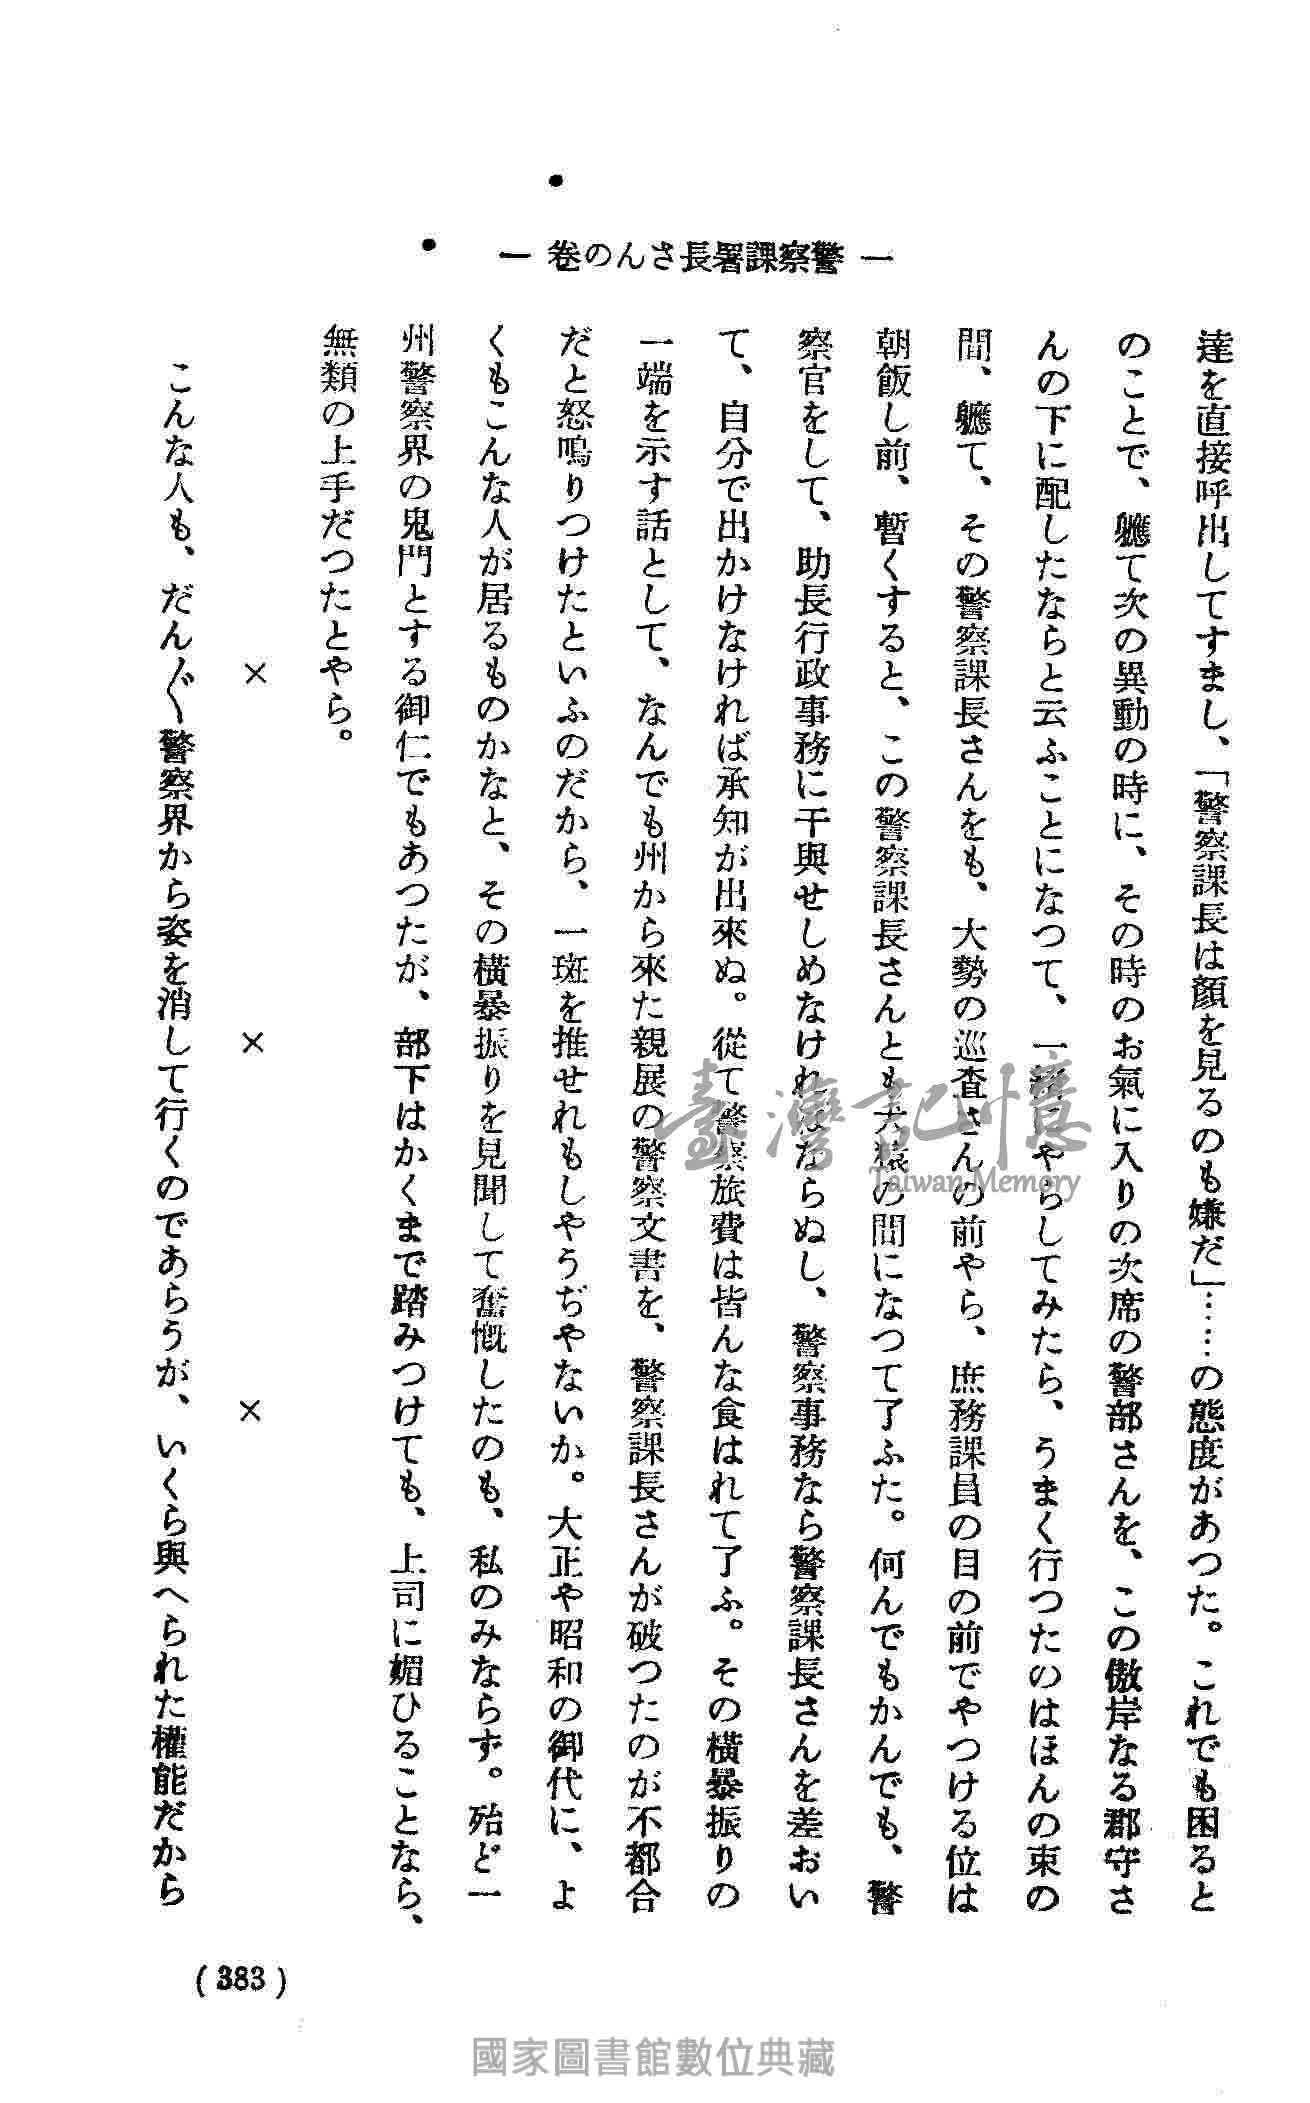 ― 警察課署長さんの卷 ―
達を直接呼出してすまし、「警察課長は顏を見るのも嫌だ」……の態度があつた。これでも困ると
のことで、軈て次の異動の時に、その時のお氣に入りの次席の警部さんを、この傲岸なる郡守さ
んの下に配したならと云ふことになつて、一緒にやらしてみたら、うまく行つたのはほんの束の
間、軈て、その警察課長さんをも、大勢の巡査さんの前やら、庶務課員の目の前でやつける位は
朝飯し前、暫くすると、この警察課長さんとも犬猿の間になつて了ふた。何んでもかんでも、警
察官をして、助長行政事務に干與せしめなければならぬし、警察事務なら警察課長さんを差おい
て、自分で出かけなければ承知が出來ぬ。從て警察旅費は皆んな食はれて了ふ。その横暴振りの
一端を示す話として、なんでも州から來た親展の警察文書を、警察課長さんが破つたのが不都合
だと怒鳴りつけたといふのだから、一斑を推せれもしやうぢやないか。大正や昭和の御代に、よ
くもこんな人が居るものかなと、その横暴振りを見聞して奮慨したのも、私のみならず。殆ど一
州警察界の鬼門とする御仁でもあつたが、部下はかくまで踏みつけても、上司に媚ひることなら、
無類の上手だつたとやら。
× × ×
こんな人も、だん〴〵警察界から姿を消して行くのであらうが、いくら與へられた權能だから
(383)
臺灣記憶
Taiwan Memory
國家圖書館數位典藏